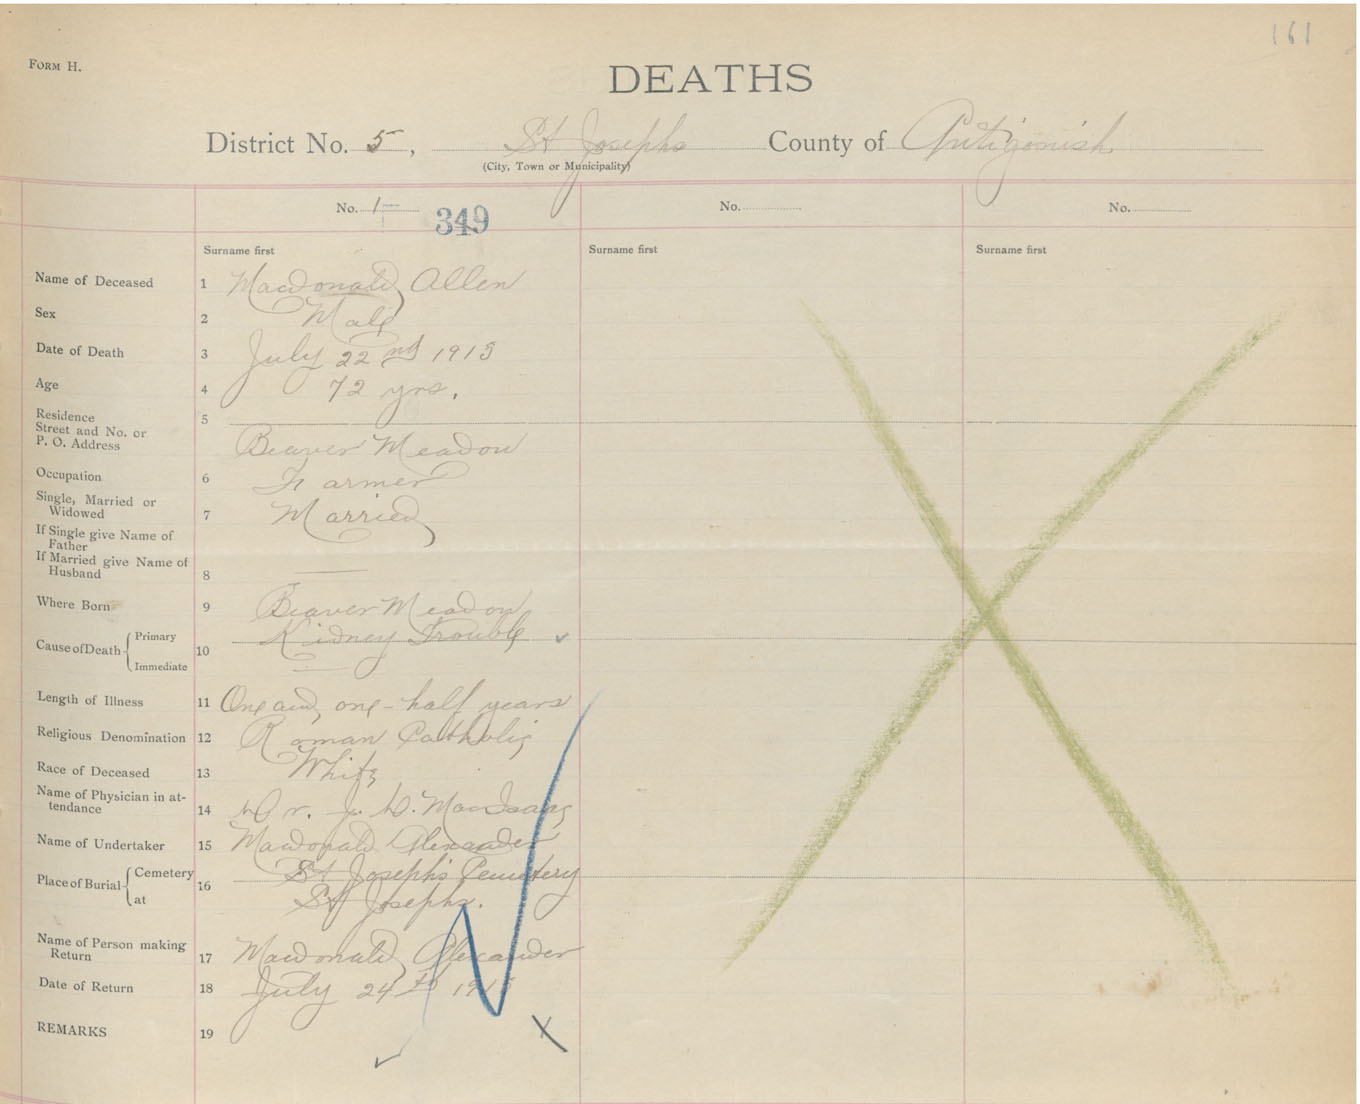 161
FORM H.
DEATHS
District No. 5, St Josephs County of Antigonish
(City, Town or Municipality)
No. 1 349 No. No.
Surname first Surname first Surname first
Name of Deceased 1 Macdonald, Allen
Sex 2 Male
Date of Death 3 July 22nd 1915
Age 4 72 yrs.
Residence 5
Street and No. or
P. O. Address Beaver Meadow
Occupation 6 Farmer
Single, Married or
Widowed 7 Married
If Single give Name of
Father
If Married give Name of
Husband 8
Where Born 9 Beaver Meadow
Cause of Death Primary Kidney Trouble
10
Immediate
Length of Illness 11 One and one-half years
Religious Denomination 12 Roman Catholic
Race of Deceased 13 White
Name of Physician in at-
tendance 14 Dr. J. D. MacIsaac
Name of Undertaker 15 Macdonald Alexander
Place of Burial Cemetery St Joseph's Cemetery
16
at St Josephs.
Name of Person making
Return 17 Macdonald, Alexander
Date of Return 18 July 24th 1915
REMARKS 19